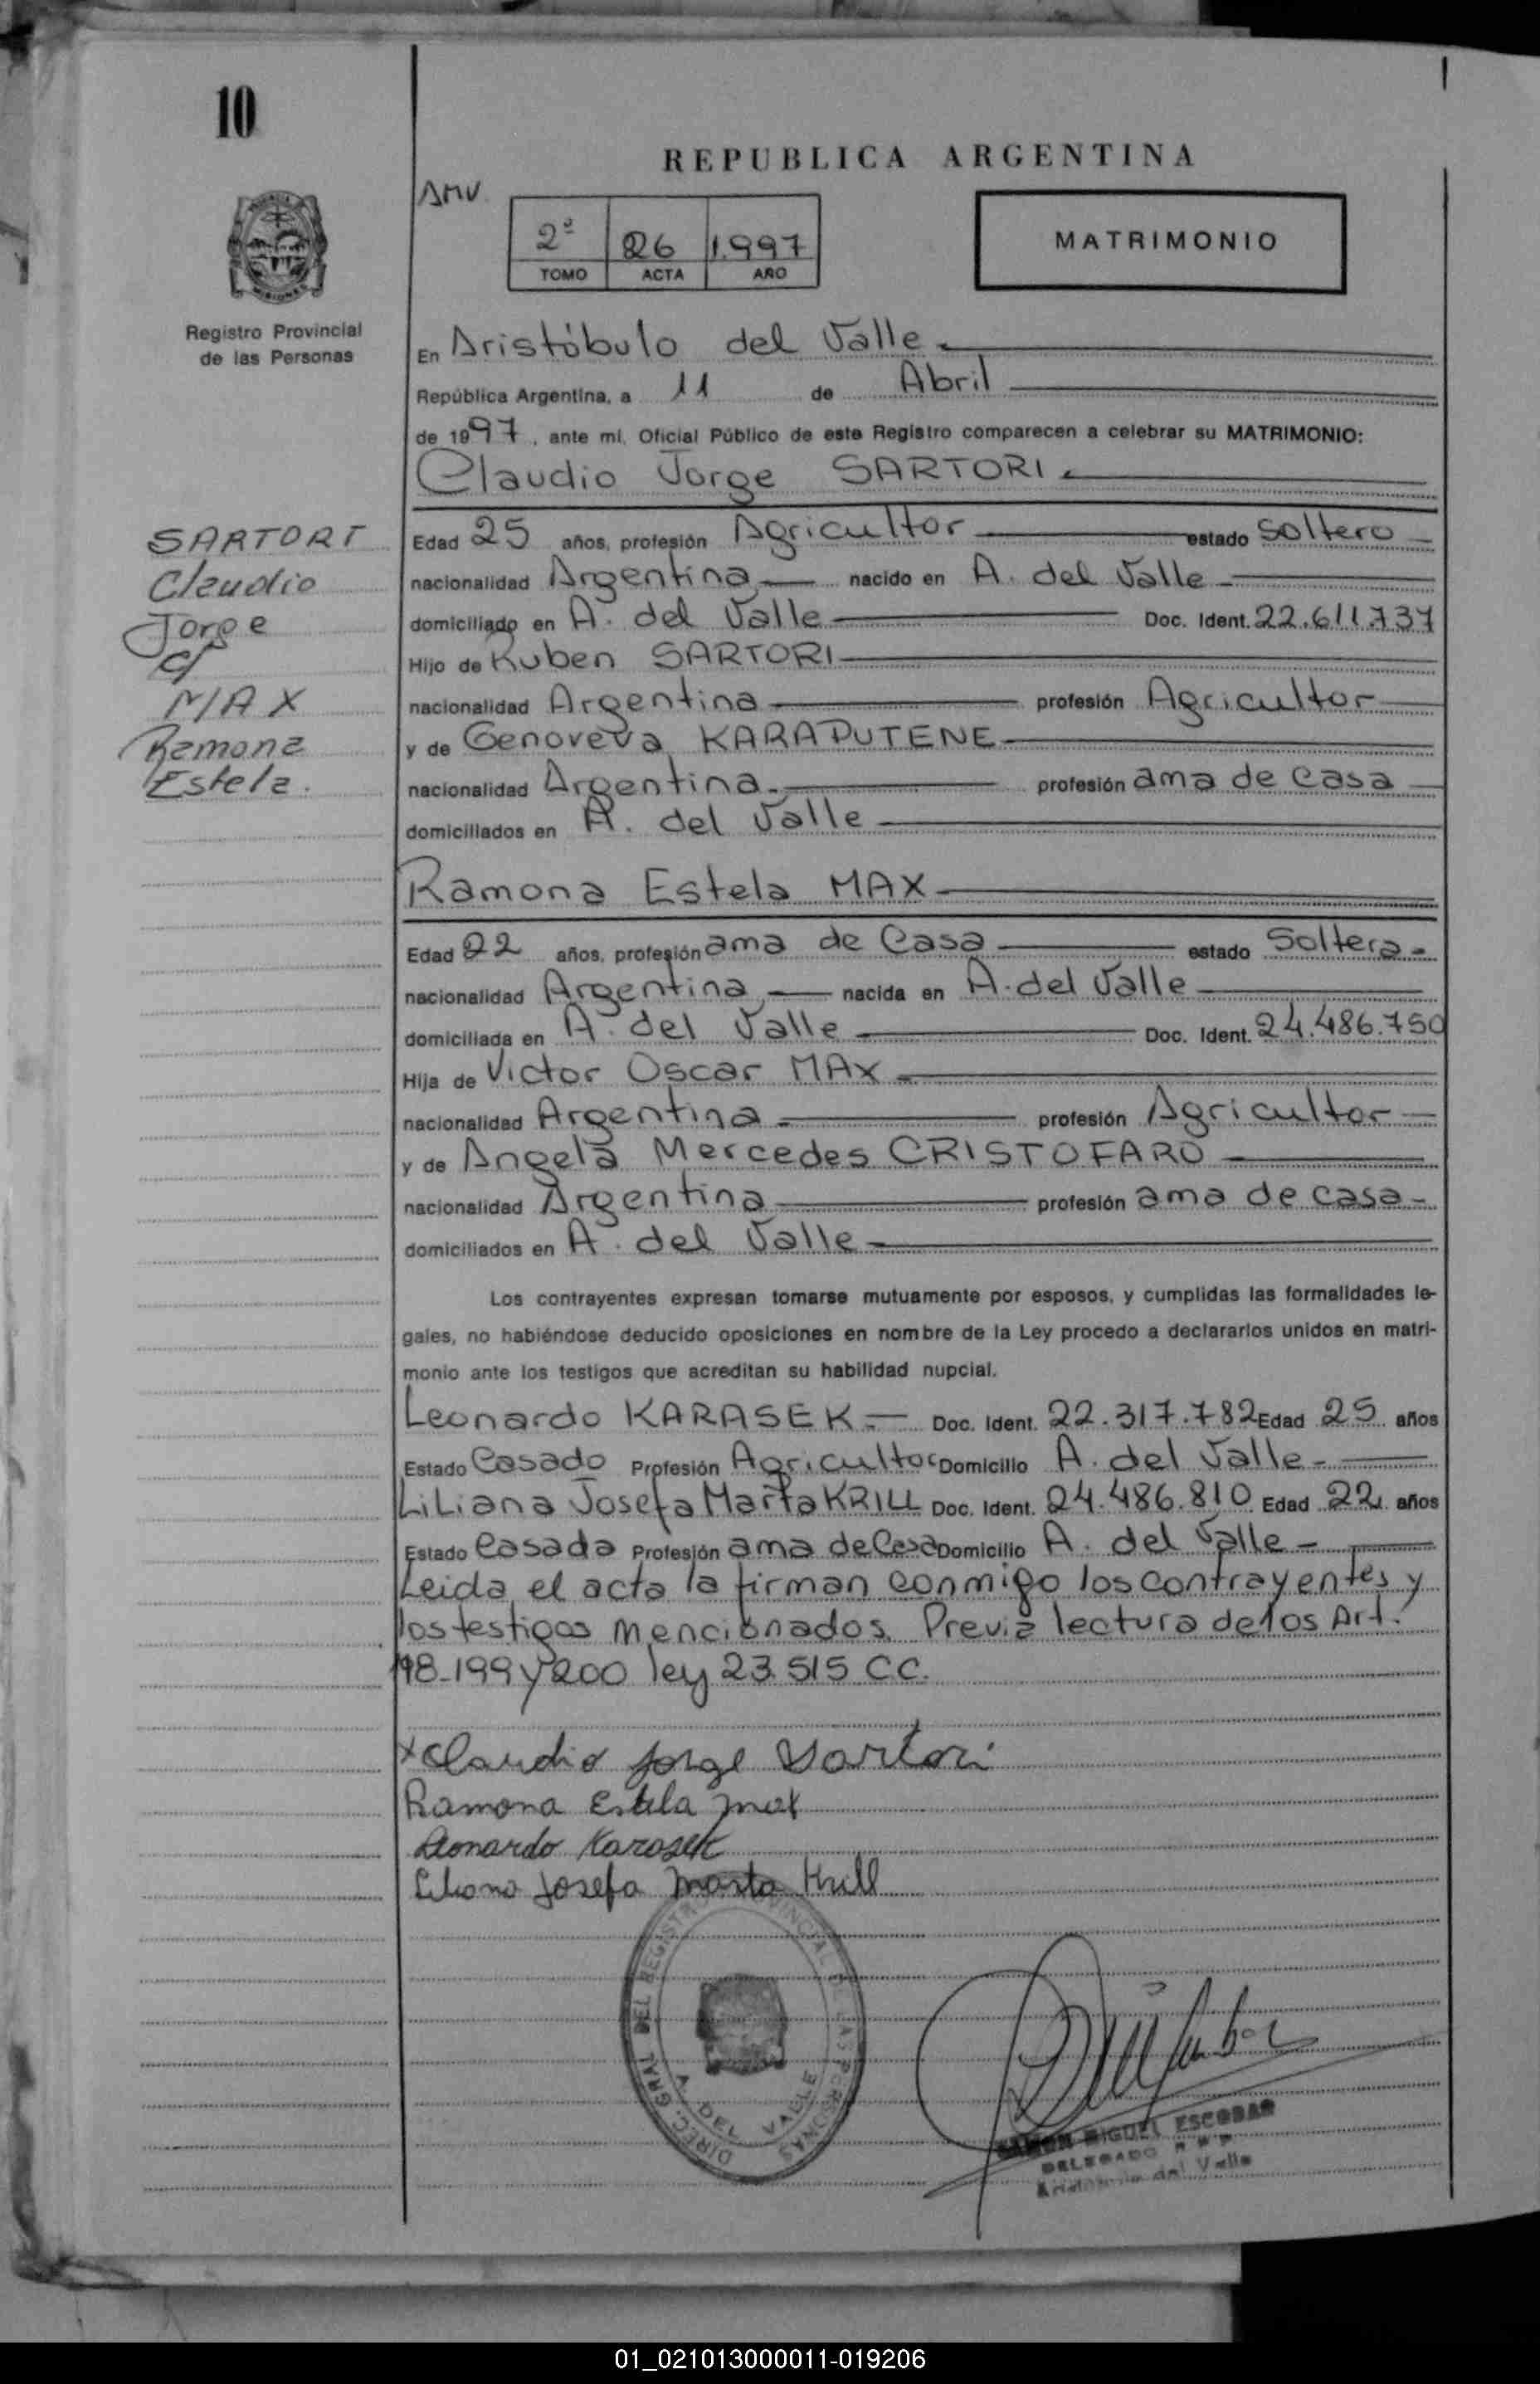 10
REPUBLICA ARGENTINA
AMV
2º 26 1.997
TOMO ACTA AÑO
MATRIMONIO
MISIONES
Registro Provincial
de las Personas
En Aristóbulo del Valle
República Argentina, a 11 de Abril
de 1997, ante mí, Oficial Público de este Registro comparecen a celebrar su MATRIMONIO:
Claudio Jorge SARTORI
SARTORI
Claudio
Jorge
c/
MAX
Ramona
Estela.
Edad 25 años, profesión Agricultor estado Soltero
nacionalidad Argentina nacido en A. del Valle
domiciliado en A. del Valle Doc. Ident. 22.611.737
Hijo de Ruben SARTORI
nacionalidad Argentina profesión Agricultor
y de Genoveva KARAPUTENE
nacionalidad Argentina profesión ama de casa
domiciliados en A. del Valle
Ramona Estela MAX
Edad 22 años, profesión ama de Casa estado Soltera
nacionalidad Argentina nacida en A. del Valle
domiciliada en A. del Valle Doc. Ident. 24.486.750
Hija de Victor Oscar MAX
nacionalidad Argentina profesión Agricultor
y de Angela Mercedes CRISTOFARO
nacionalidad Argentina profesión ama de casa
domiciliados en A. del Valle
Los contrayentes expresan tomarse mutuamente por esposos, y cumplidas las formalidades le-
gales, no habiéndose deducido oposiciones en nombre de la Ley procedo a declararlos unidos en matri-
monio ante los testigos que acreditan su habilidad nupcial.
Leonardo KARASEK Doc. Ident. 22.317.782 Edad 25 años
Estado Casado Profesión Agricultor Domicilio A. del Valle
Liliana Josefa Marta KRILL Doc. Ident. 24.486.810 Edad 22 años
Estado Casada Profesión ama de Casa Domicilio A. del Valle
Leida el acta la firman conmigo los contrayentes y
los testigos mencionados. Previa lectura de los Art.
198-199 y 200 ley 23.515 C.C.
x Claudio Jorge Sartori
Ramona Estela Max
Leonardo Karasek
Liliana Josefa Marta Krill
DIREC. GRAL. DEL REGISTRO PROVINCIAL DE LAS PERSONAS
A. DEL VALLE
RAMON MIGUEL ESCOBAR
DELEGADO
Aristóbulo del Valle
01_021013000011-019206